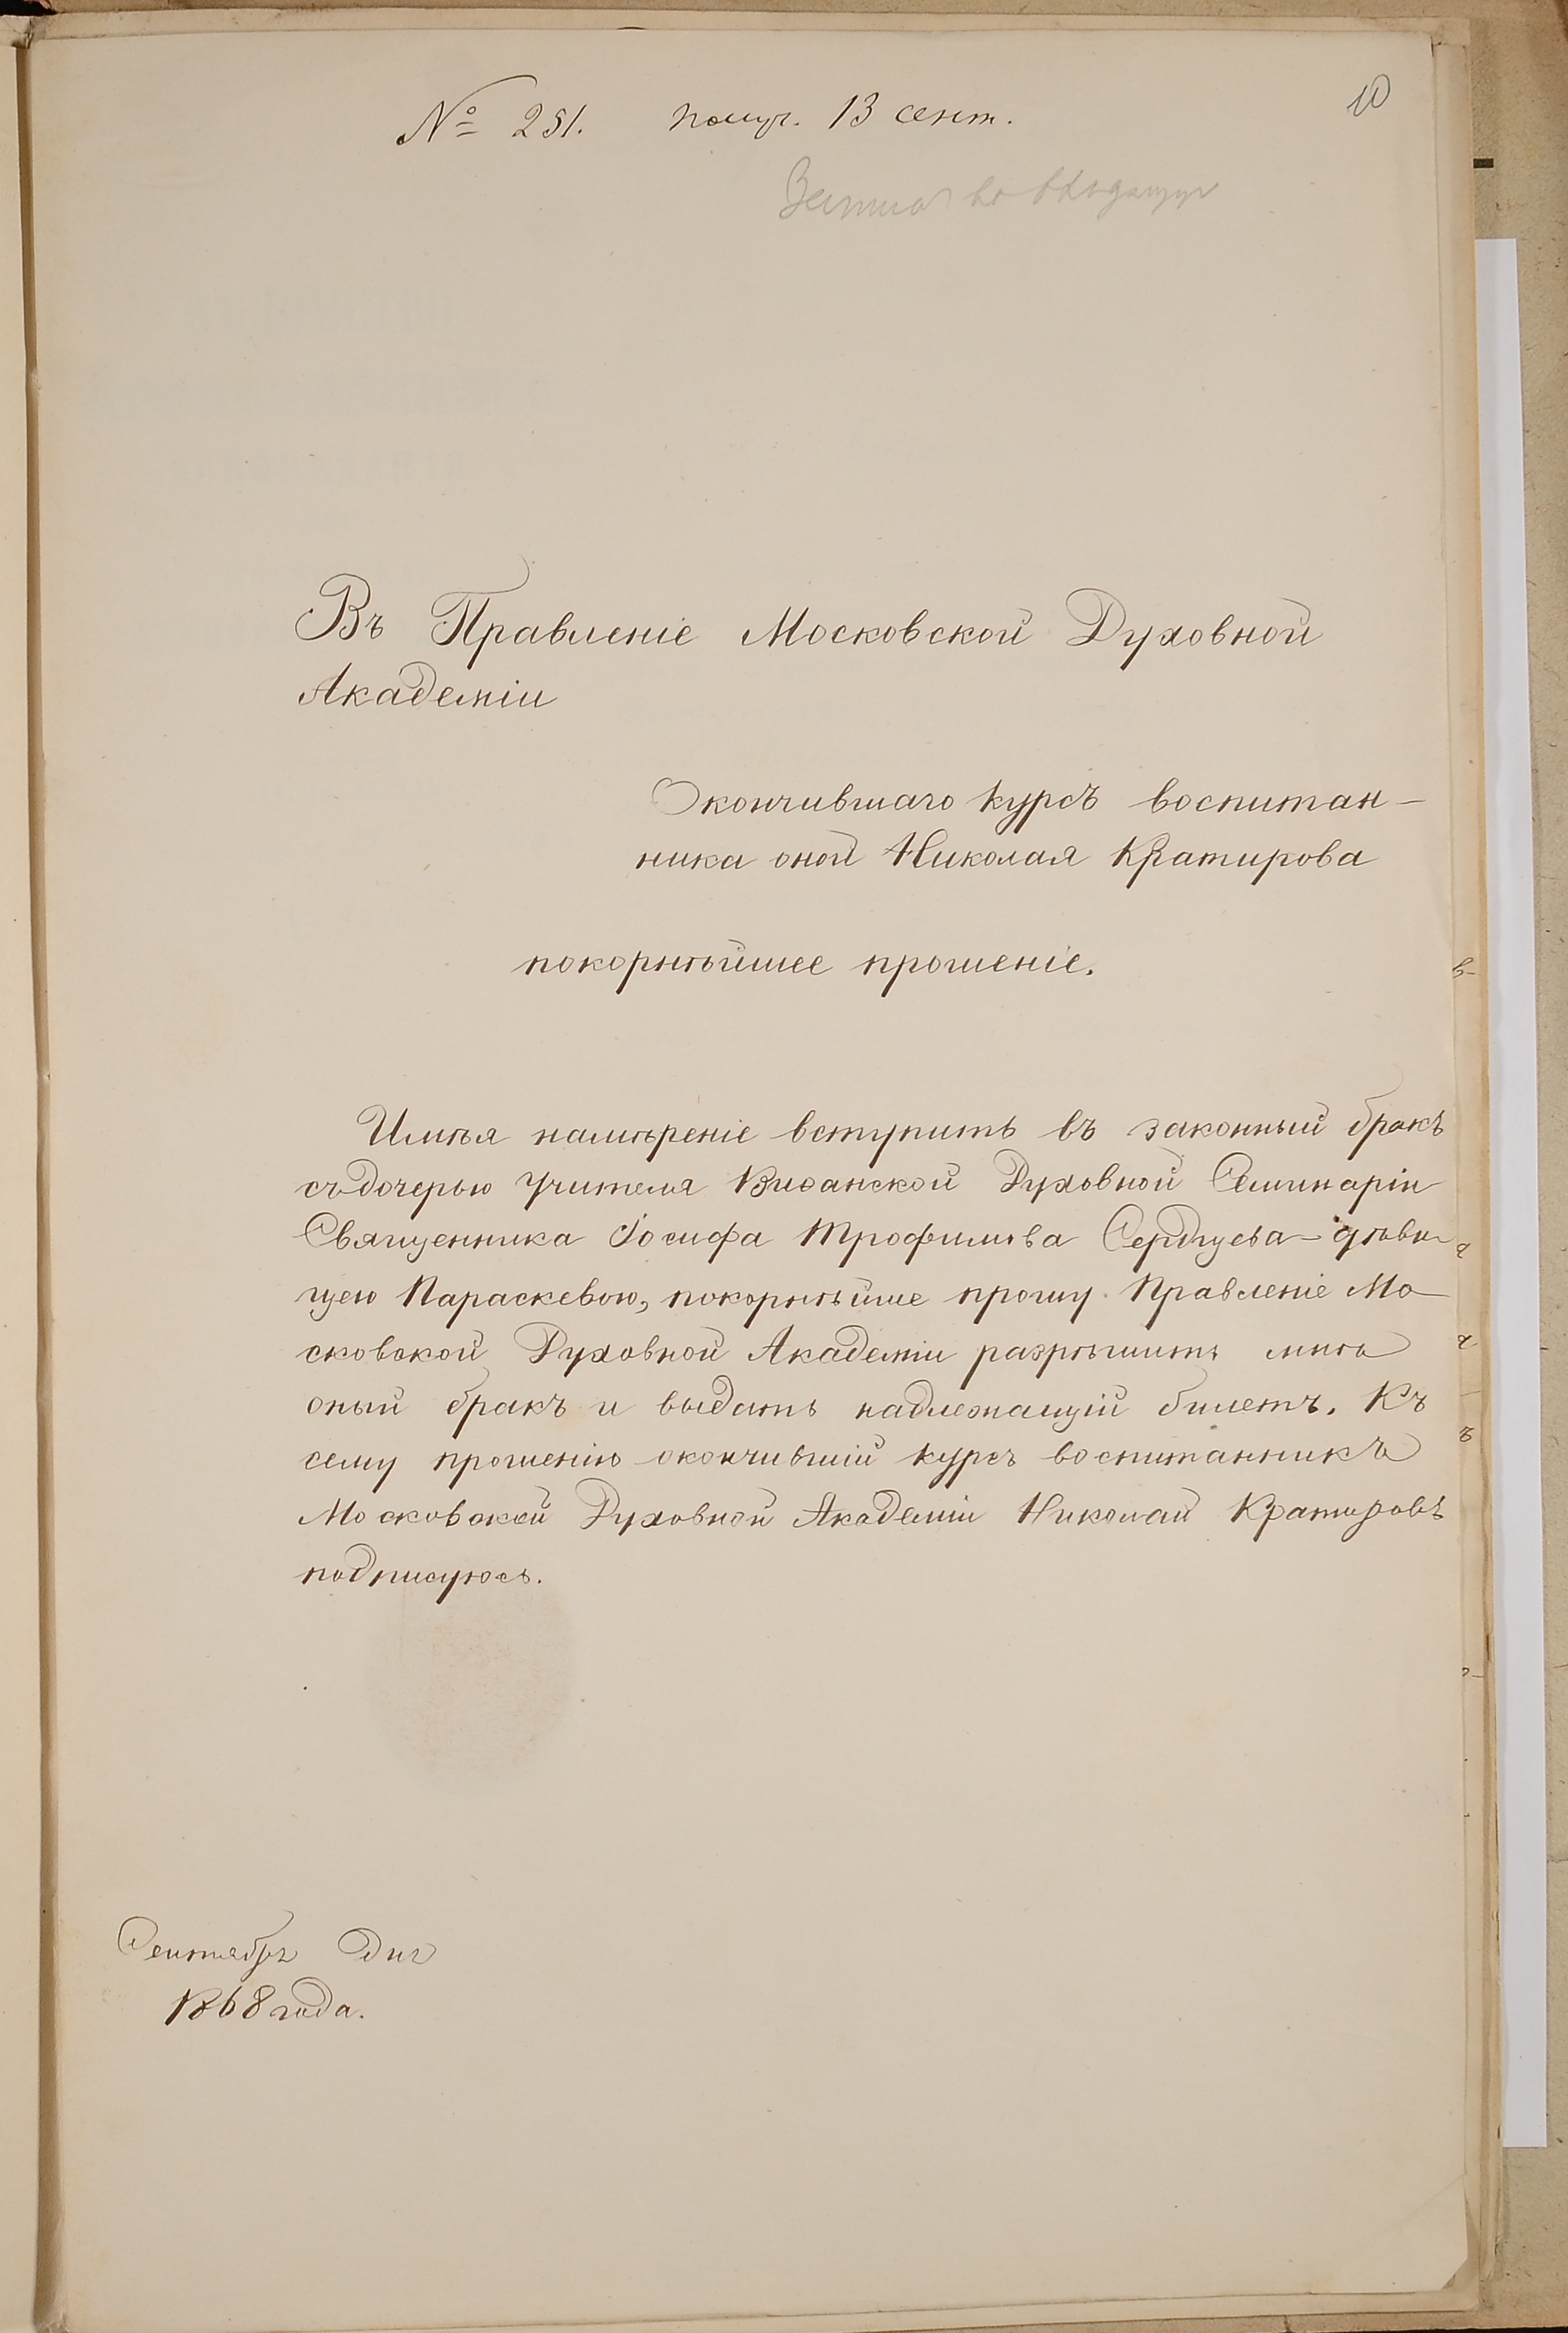 10
№ 251. получ. 13 сент.
во входящую
Въ Правленіе Московской Духовной
Академіи
Окончившаго курсъ воспитан-
ника оной Николая Кратирова
покорнѣйшее прошеніе.
Имѣя намѣреніе вступить въ законный бракъ
съ дочерью Учителя Виѳанской Духовной Семинаріи
Священника Іосифа Трофимова Сердцева - дѣви-
цею Параскевою, покорнѣйше прошу Правленіе Мо-
сковской Духовной Академіи разрѣшить мнѣ
оный бракъ и выдать надлежащій билетъ. Къ
сему прошенію окончившій курсъ воспитанникъ
Московской Духовной Академіи Николай Кратировъ
подписуюсь.
Сентября дня
1868 года.